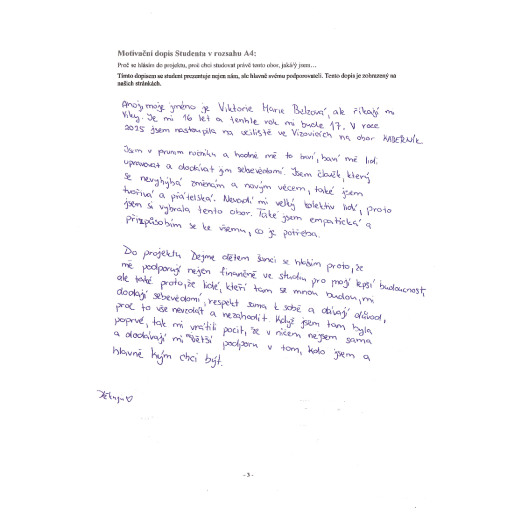 Motivační dopis Studenta v rozsahu A4:
Proč se hlásím do projektu, proč chci studovat právě tento obor, jaká/ý jsem…
Tímto dopisem se student prezentuje nejen nám, ale hlavně svému podporovateli. Tento dopis je zobrazený na
našich stránkách.
Ahoj, moje jméno je Viktorie Marie Belzová, ale říkají mi
Viky. Je mi 16 let a tenhle rok mi bude 17. V roce
2025 jsem nastoupila na učiliště ve Vizovicích na obor KADEŘNÍK.
Jsem v prvním ročníku a hodně mě to baví, baví mě lidi
upravovat a dodávat jim sebevědomí. Jsem člověk, který
se nevyhýbá změnám a novým věcem, také jsem
tvořivá a přátelská. Nevadí mi velký kolektiv lidí, proto
jsem si vybrala tento obor. Také jsem empatická a
přizpůsobím se ke všemu, co je potřeba.
Do projektu Dejme dětem šanci se hlásím proto, že
mě podporují nejen finančně ve studiu pro mojí lepší budoucnost,
ale také proto, že lidé, kteří tam se mnou budou, mi
dodají sebevědomí, respekt sama k sobě a dávají důvod,
proč to vše nevzdát a nezahodit. Když jsem tam byla
poprvé, tak mi vrátili pocit, že v ničem nejsem sama
a dodávají mi větší podporu v tom, kdo jsem a
hlavně kým chci být.
Děkuju ♡
- 3 -